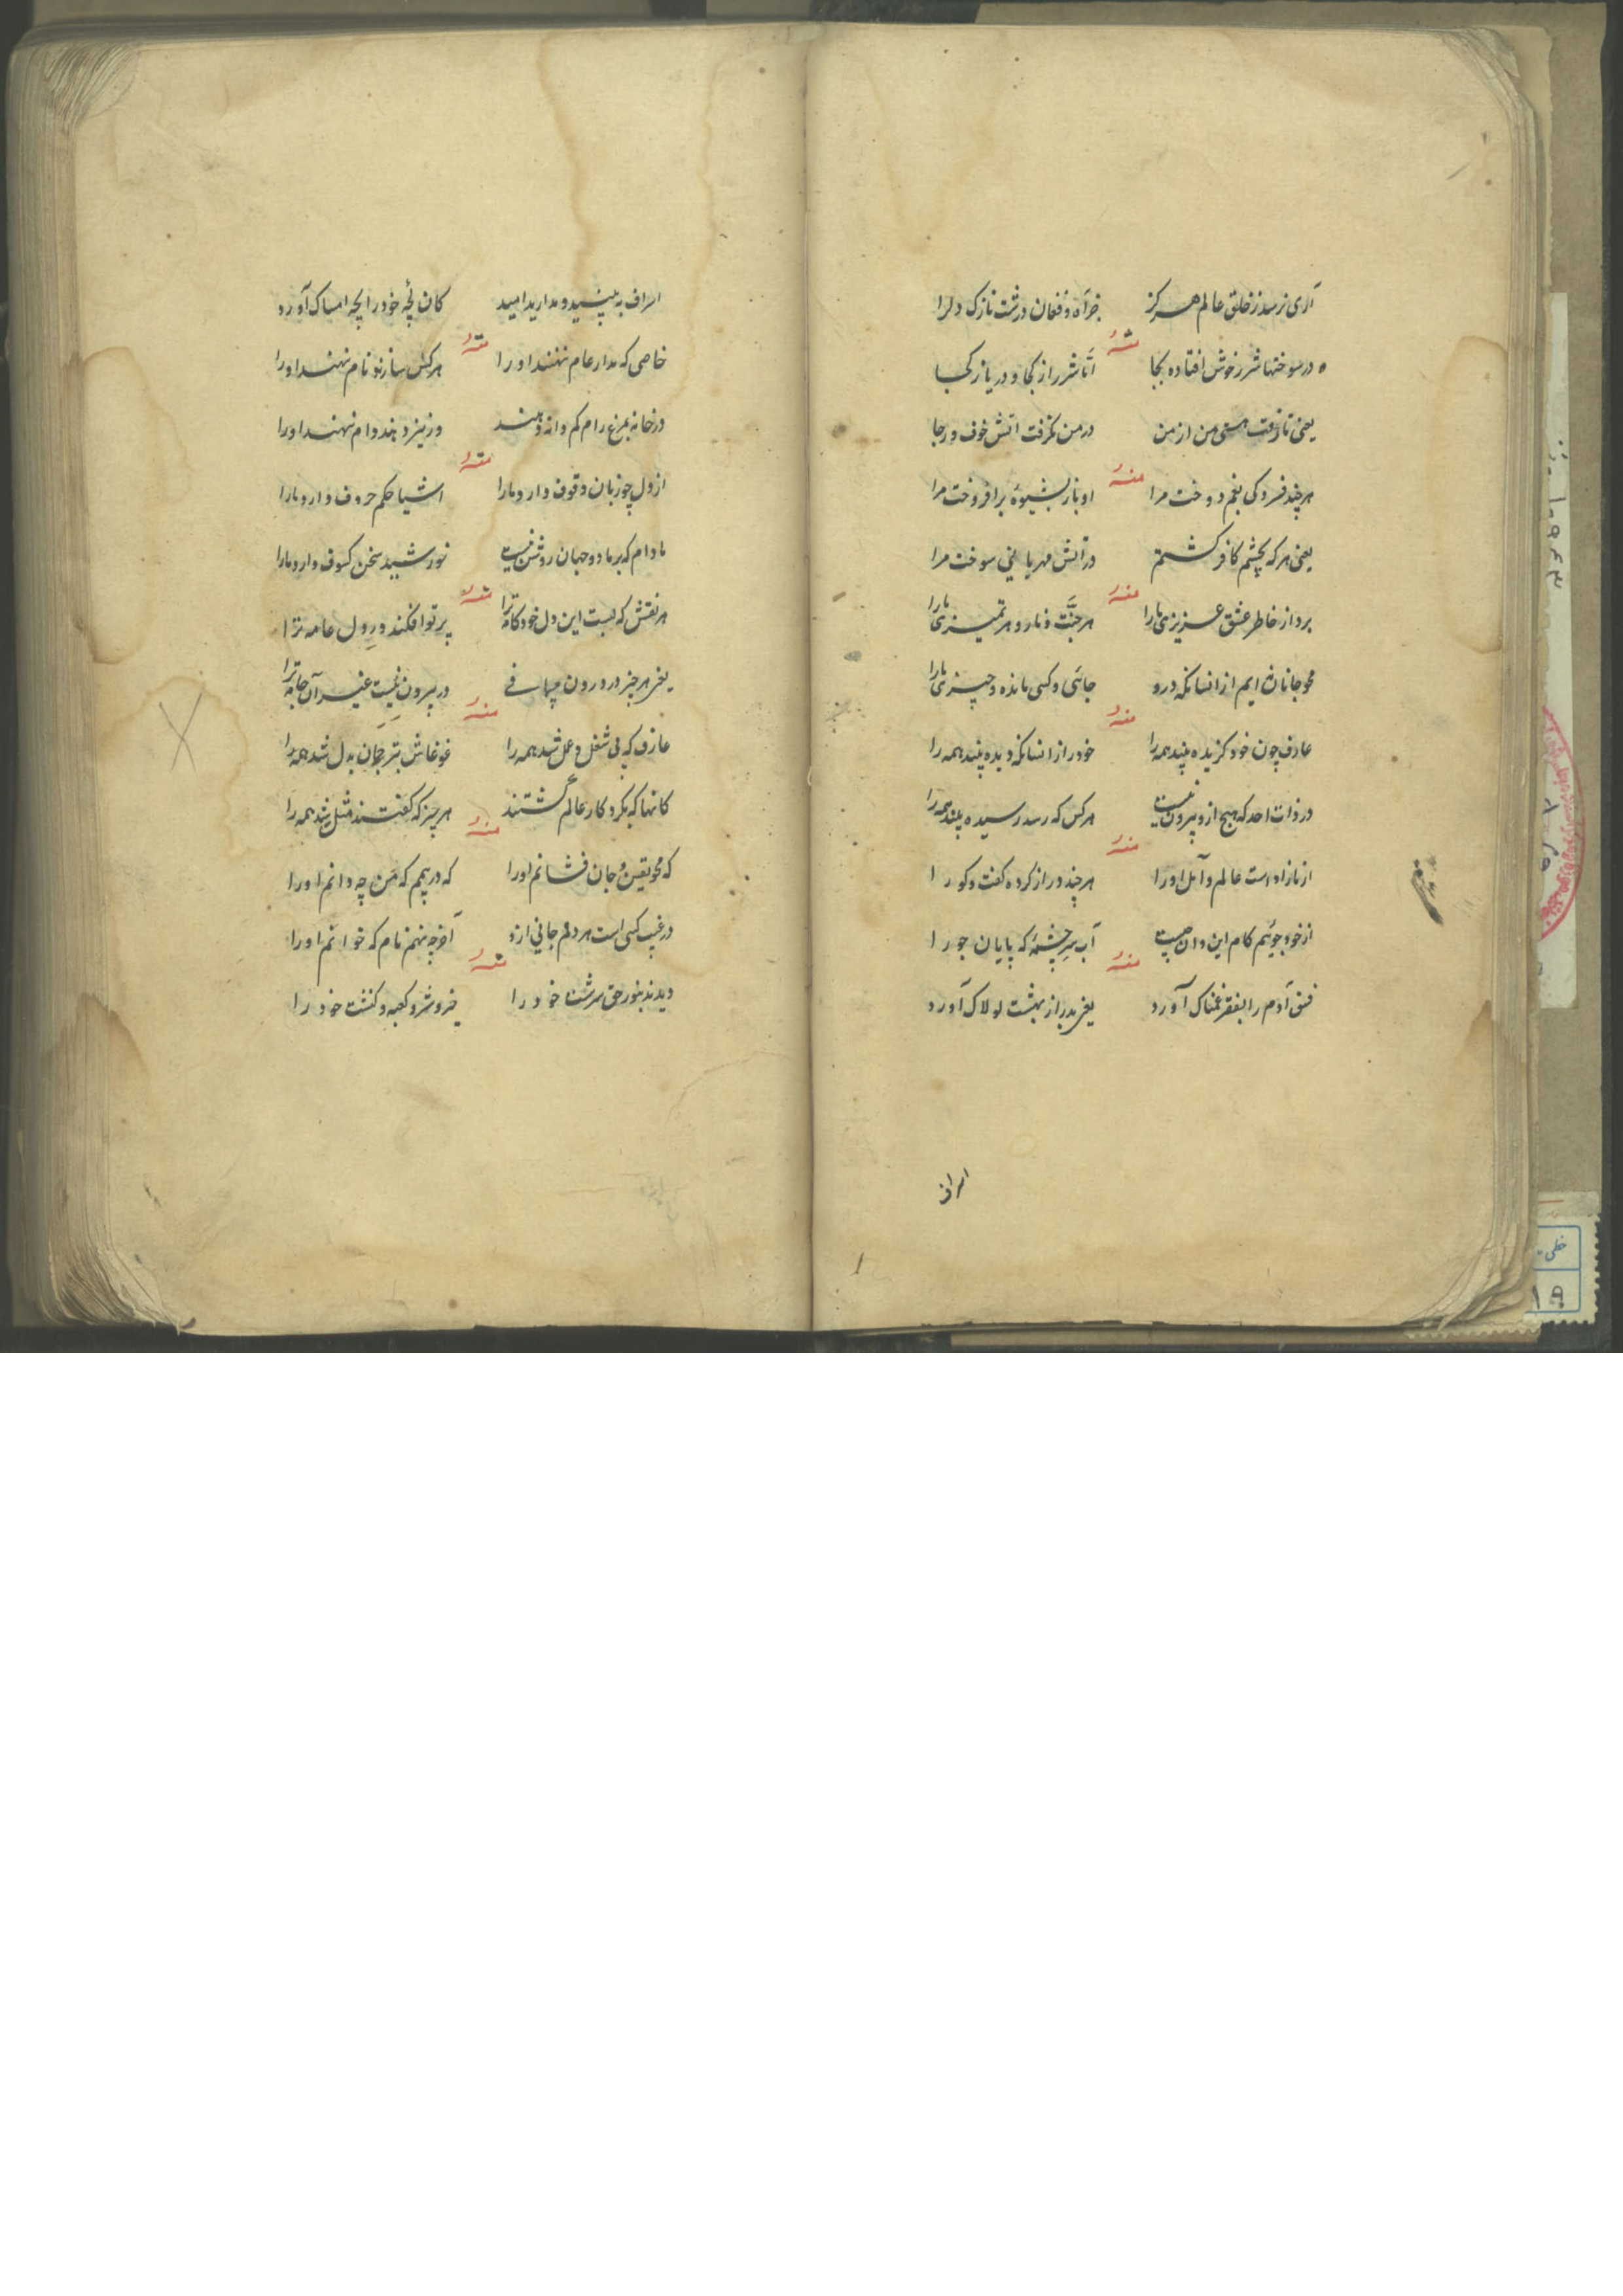 آری نرسد ز خلق عالم هرگز جز آه و فغان درشت نازک دلرا
منه
در سوختها شرر خوش افتاده بجا اما شرر از کجا و دریا ز کجا
یعنی تا رفت هستی من از من در من نگرفت آتش خوف و رجا
منه
هر چند فسردگی بغم دوخت مرا او باز بشیوه برافروخت مرا
یعنی هر که بچشم کافر کشتم در آتش مهربانی سوخت مرا
منه
برد از خاطر عشق عزیزی ما را هر جنت و نار و هر تمیزی ما را
محو جانان ایم از انسانکه درو جائی و کسی مانده و چیزی ما را
منه
عارف چون خود گزیده بیند همه را خود را ز انسانکه دیده بیند همه را
در ذات احد که هیچ ازو بیرون نیست هر کس که رسد رسیده بیند همه را
منه
از ناز او است عالم و آمل او را هر چند دراز کرده گفت و گو را
از خود جوئیم کام این و آن چیست آب سر چشمه که پایان جو را
منه
فسق آدم را بفقر غمناک آورد یعنی پدر از بهشت لولاک آورد
اسراف
اسراف به بینید و مدارید امید کان بچه خود را بچه امساک آورد
منه
خاصی که مدار عام ننهند او را هر کس ساز نو نام نهند او را
در خانه بمرغ رام کم دانه دهند ورنیز دهند دام نهند او را
منه
از دل چو زبان وقوف دارد ما را اشیا حکم حروف دارد ما را
مادام که بر ما دو جهان روشن نیست خورشید سخن کسوف دارد ما را
منه
هر نقش که بست این دل خودکامه ترا پرتو افکند در دل عامه ترا
یعنی هر چیز در درون میباقی در بیرون نیست غیر آن جامه ترا
منه
عارف که بی شغل و عمل شد همه را غوغاش بترجمان بدل شد همه را
کانها که بگرد کار عالم گشتند هر چیز که گفتند مثل شد همه را
منه
که محو یقین و جان فشانم او را که در بیم که من چه دانم او را
در غیب کسی است هر دلم جانی ازو آخر چه نهم نام که خوانم او را
منه
دیدند بنور حق سرشت خود را خیر و شر و کعبه و کنشت خود را